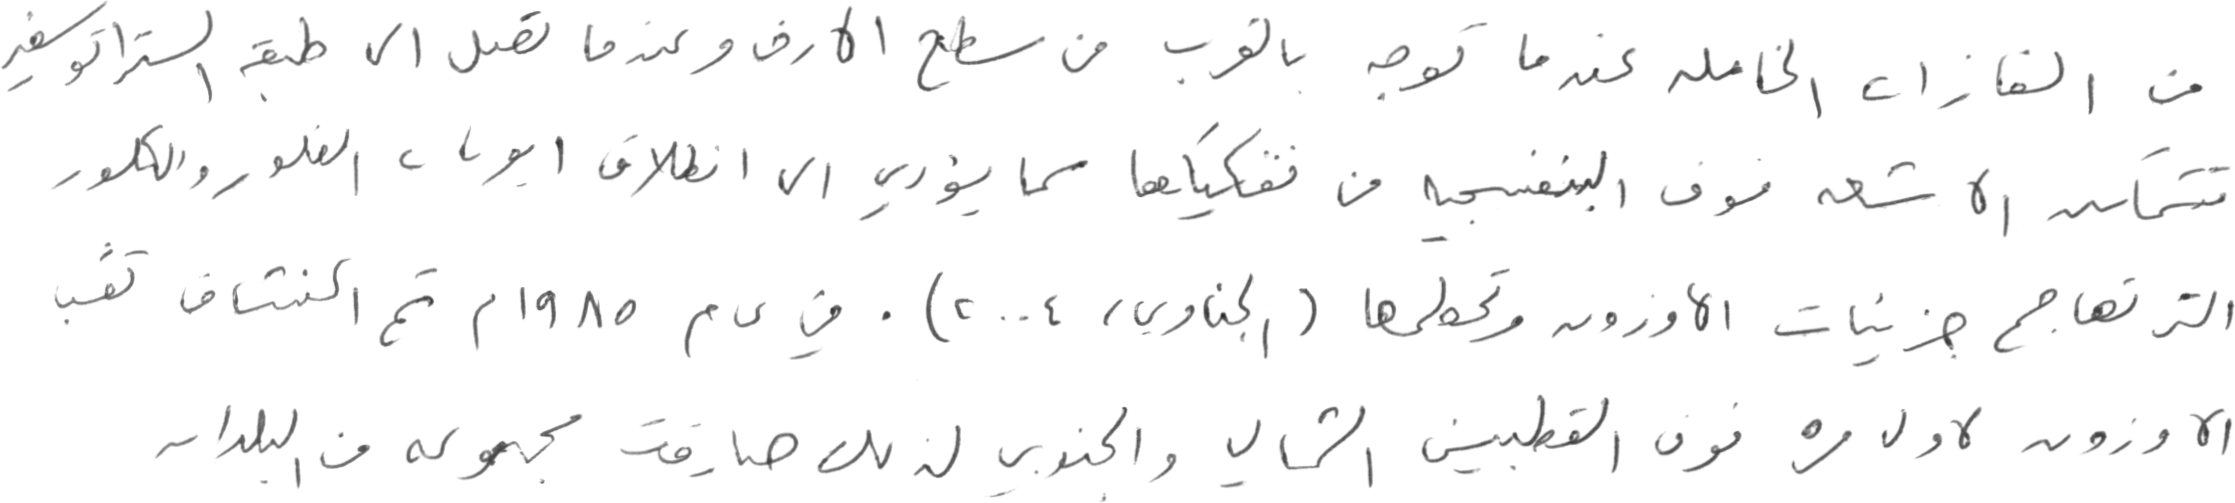 من الغازات الخامله عندما توجد بالقرب من سطح الارض وعندما تصل الى طبقة الستراتوسفير
تتمكن الاشعه فوق البنفسجيه من تفكيكها مما يؤدي الى انطلاق ايونات الفلور والكلور
التي تهاجم جزيئات الاوزون وتحطمها (الجناوي، ٢٠٠٤). في عام ١٩٨٥م تم اكتشاف ثقب
الاوزون لاول مره فوق القطبين الشمالي والجنوبي لذلك صادقت مجموعه من البلدان